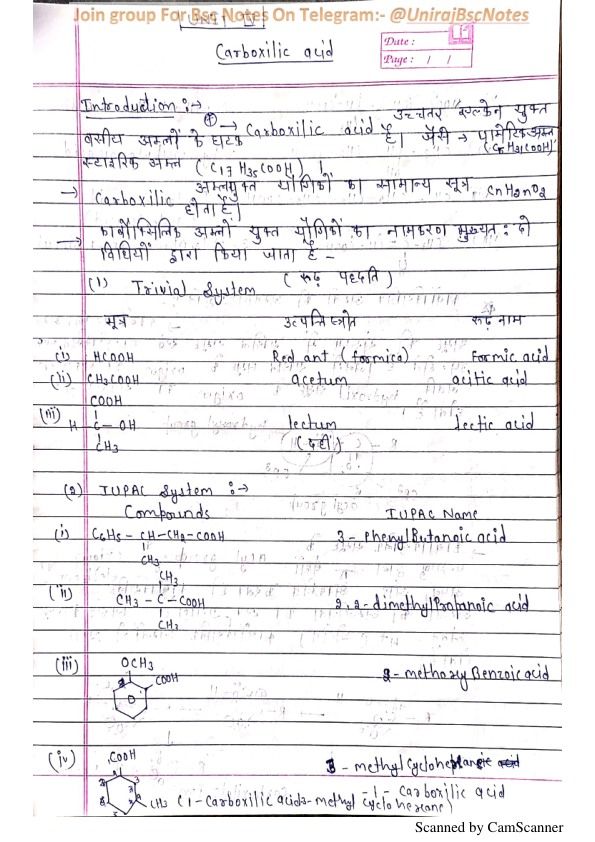 Join group For Bsc Notes On Telegram:- @UnirajBscNotes
UNIT
Carboxilic acid
Date :
Page : / /
Introduction :→
उच्चतर एल्केन युक्त
वसीय अम्लों के घटक → Carboxilic acid हैं। जैसे → पामेटिक अम्ल
(C15H31COOH)
स्टाइरिक अम्ल (C17H35COOH)।
→ Carboxilic अम्लयुक्त यौगिकों का सामान्य सूत्र CnH2nO2
होता है।
→ कार्बोक्सिलिक अम्लों युक्त यौगिकों का नामकरण मुख्यत: दो
विधियों द्वारा किया जाता है -
(1) Trivial System (रूढ़ पद्दति)
सूत्र उत्पत्ति स्त्रोत रूढ़ नाम
(i) HCOOH Red ant (formica) Formic acid
(ii) CH3COOH acetum acitic acid
COOH
(iii) H C - OH lectum lectic acid
CH3 (दही)
(2) IUPAC System :→
Compounds IUPAC Name
(i) C6H5 - CH - CH2 - COOH 3 - phenyl Butanoic acid
CH3
CH3
(ii) CH3 - C - COOH 2,2-dimethyl Propanoic acid
CH3
OCH3
(iii) COOH 2 - methoxy Benzoic acid
(iv) COOH 3 - methyl cyclohexane
- 1 - Carboxilic acid
CH3 (1 - Carboxilic acid 3 - methyl cyclohexane)
Scanned by CamScanner